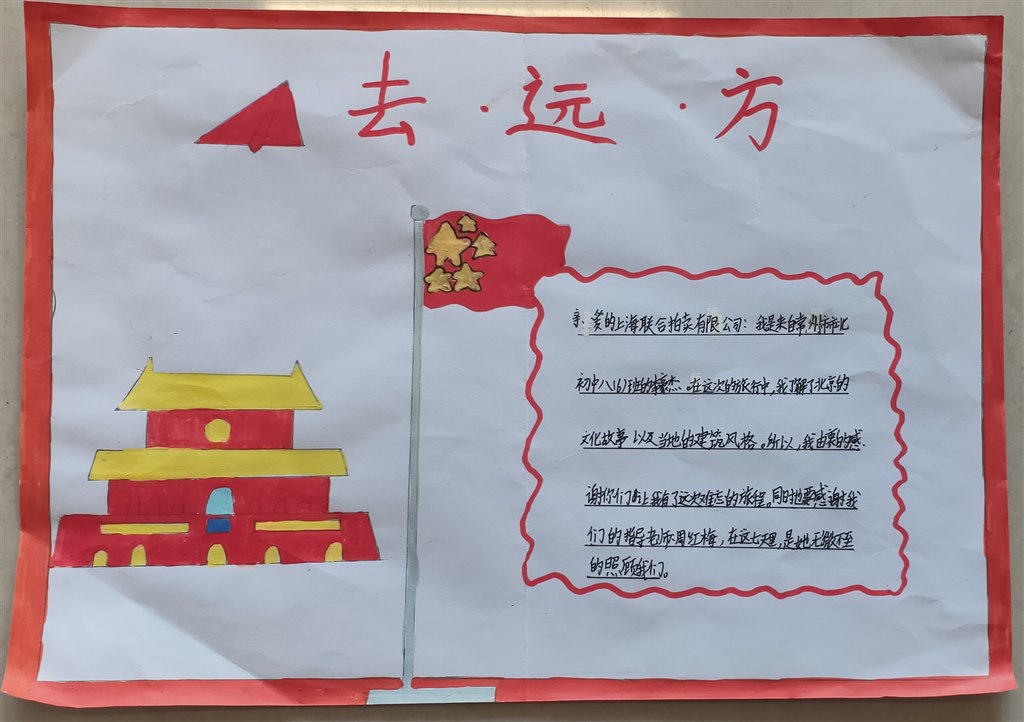 去·远·方
亲爱的上海联合拍卖有限公司：我是来自常州市市北
初中八(6)班的杰.在这次的旅行中,我了解了北京的
文化故事以及当地的建筑风格。所以,我由衷的感
谢你们让我有了这次难忘的旅程。同时也要感谢我
们的指导老师周红梅，在这七天里,是她无微不至
的照顾我们。